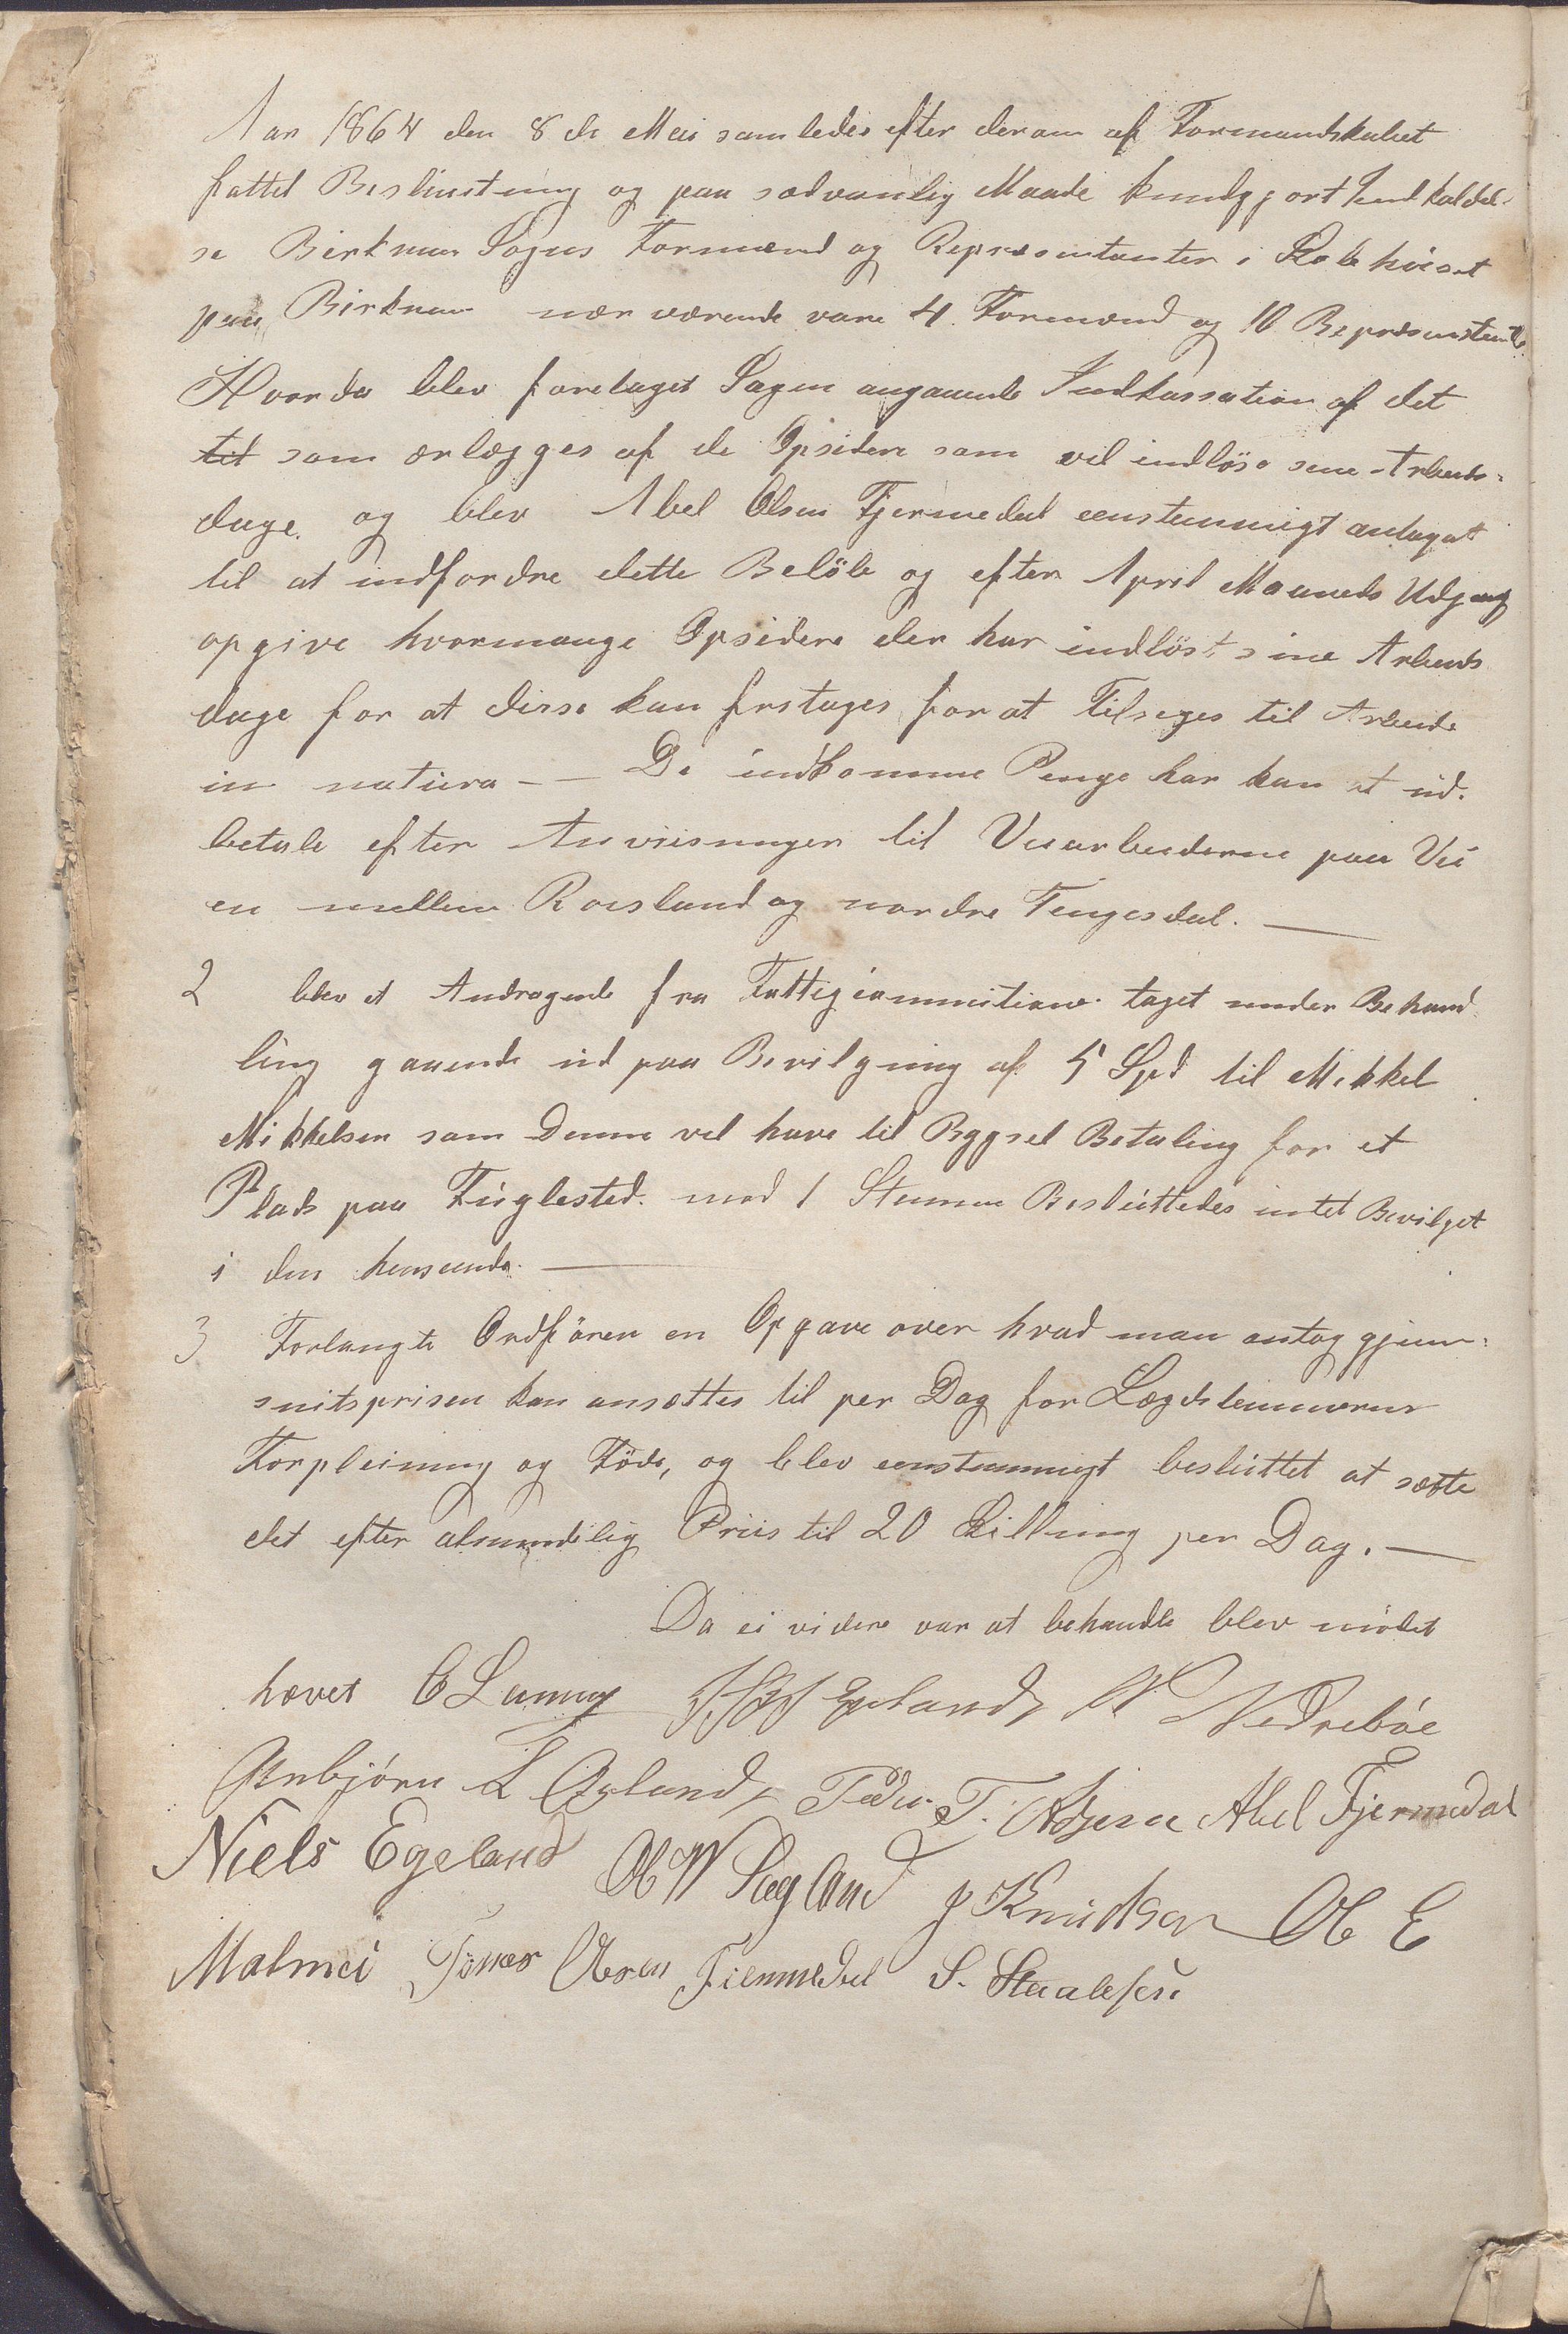 Aar 1864 den 8de Mai samledes efter derom af Formandskabet
fattet Besluutning og paa sædvanlig Maade kundgjort Indkaldel-
se Birkrem Sogns Formænd og Repræsentanter i Skolehuset
paa Birkrem nærværende vare 4 Formænd og 10 Repræsentanter
Hvorda blev foretaget Sagen angaaende Indkassation af det
til som erlægges af de Opsidere som vil indløse sine Arbeids-
dage. og blev Abel Olsen Fjermedal eenstemmigt antaget
til at indfordre dette Beløb og efter April Maaneds Udgang
opgive hvormange Opsidere der har indløst sine Arbeids
dage for at disse kan fratages for at Tilsiges til Arbeide
in natura — De indkomne Penge har han at ud-
betale efter Anviisninger til Veiarbeiderne paa Vei
en mellem Roesland og nordre Tengesdal. —
2 blev et Andragende fra Fattigcommitionen taget under Behand
ling gaaende ud paa Bevilgning af 5 Spd til Mikkel
Mikkelsen som Denne vil have til Bygsel Betaling for et
Plads paa Fuglested. med 1 Stemme Besluttedes intet Bevilget
i den henseende. —
3 Forlangte Ordføren en Opgave over hvad man antog gjenn-
snitsprisen kan ansættes til per Dag for Lægdslemmernes
Forpleining og Føde, og blev eenstemmigt besluttet at sætte
det efter almindelig Priis til 20 Skilling per Dag. —
Da ei videre var at behandle blev mødet
hævet C Lunng Egeland, N Nedrebøe
Asbjørn L Øgland, Peder T. Abel Fjermedal
Niels Egeland Ole W Sagland J Knudsen Ole E
Malmei Tønnes Olsen Fiermedal S. Staalesen